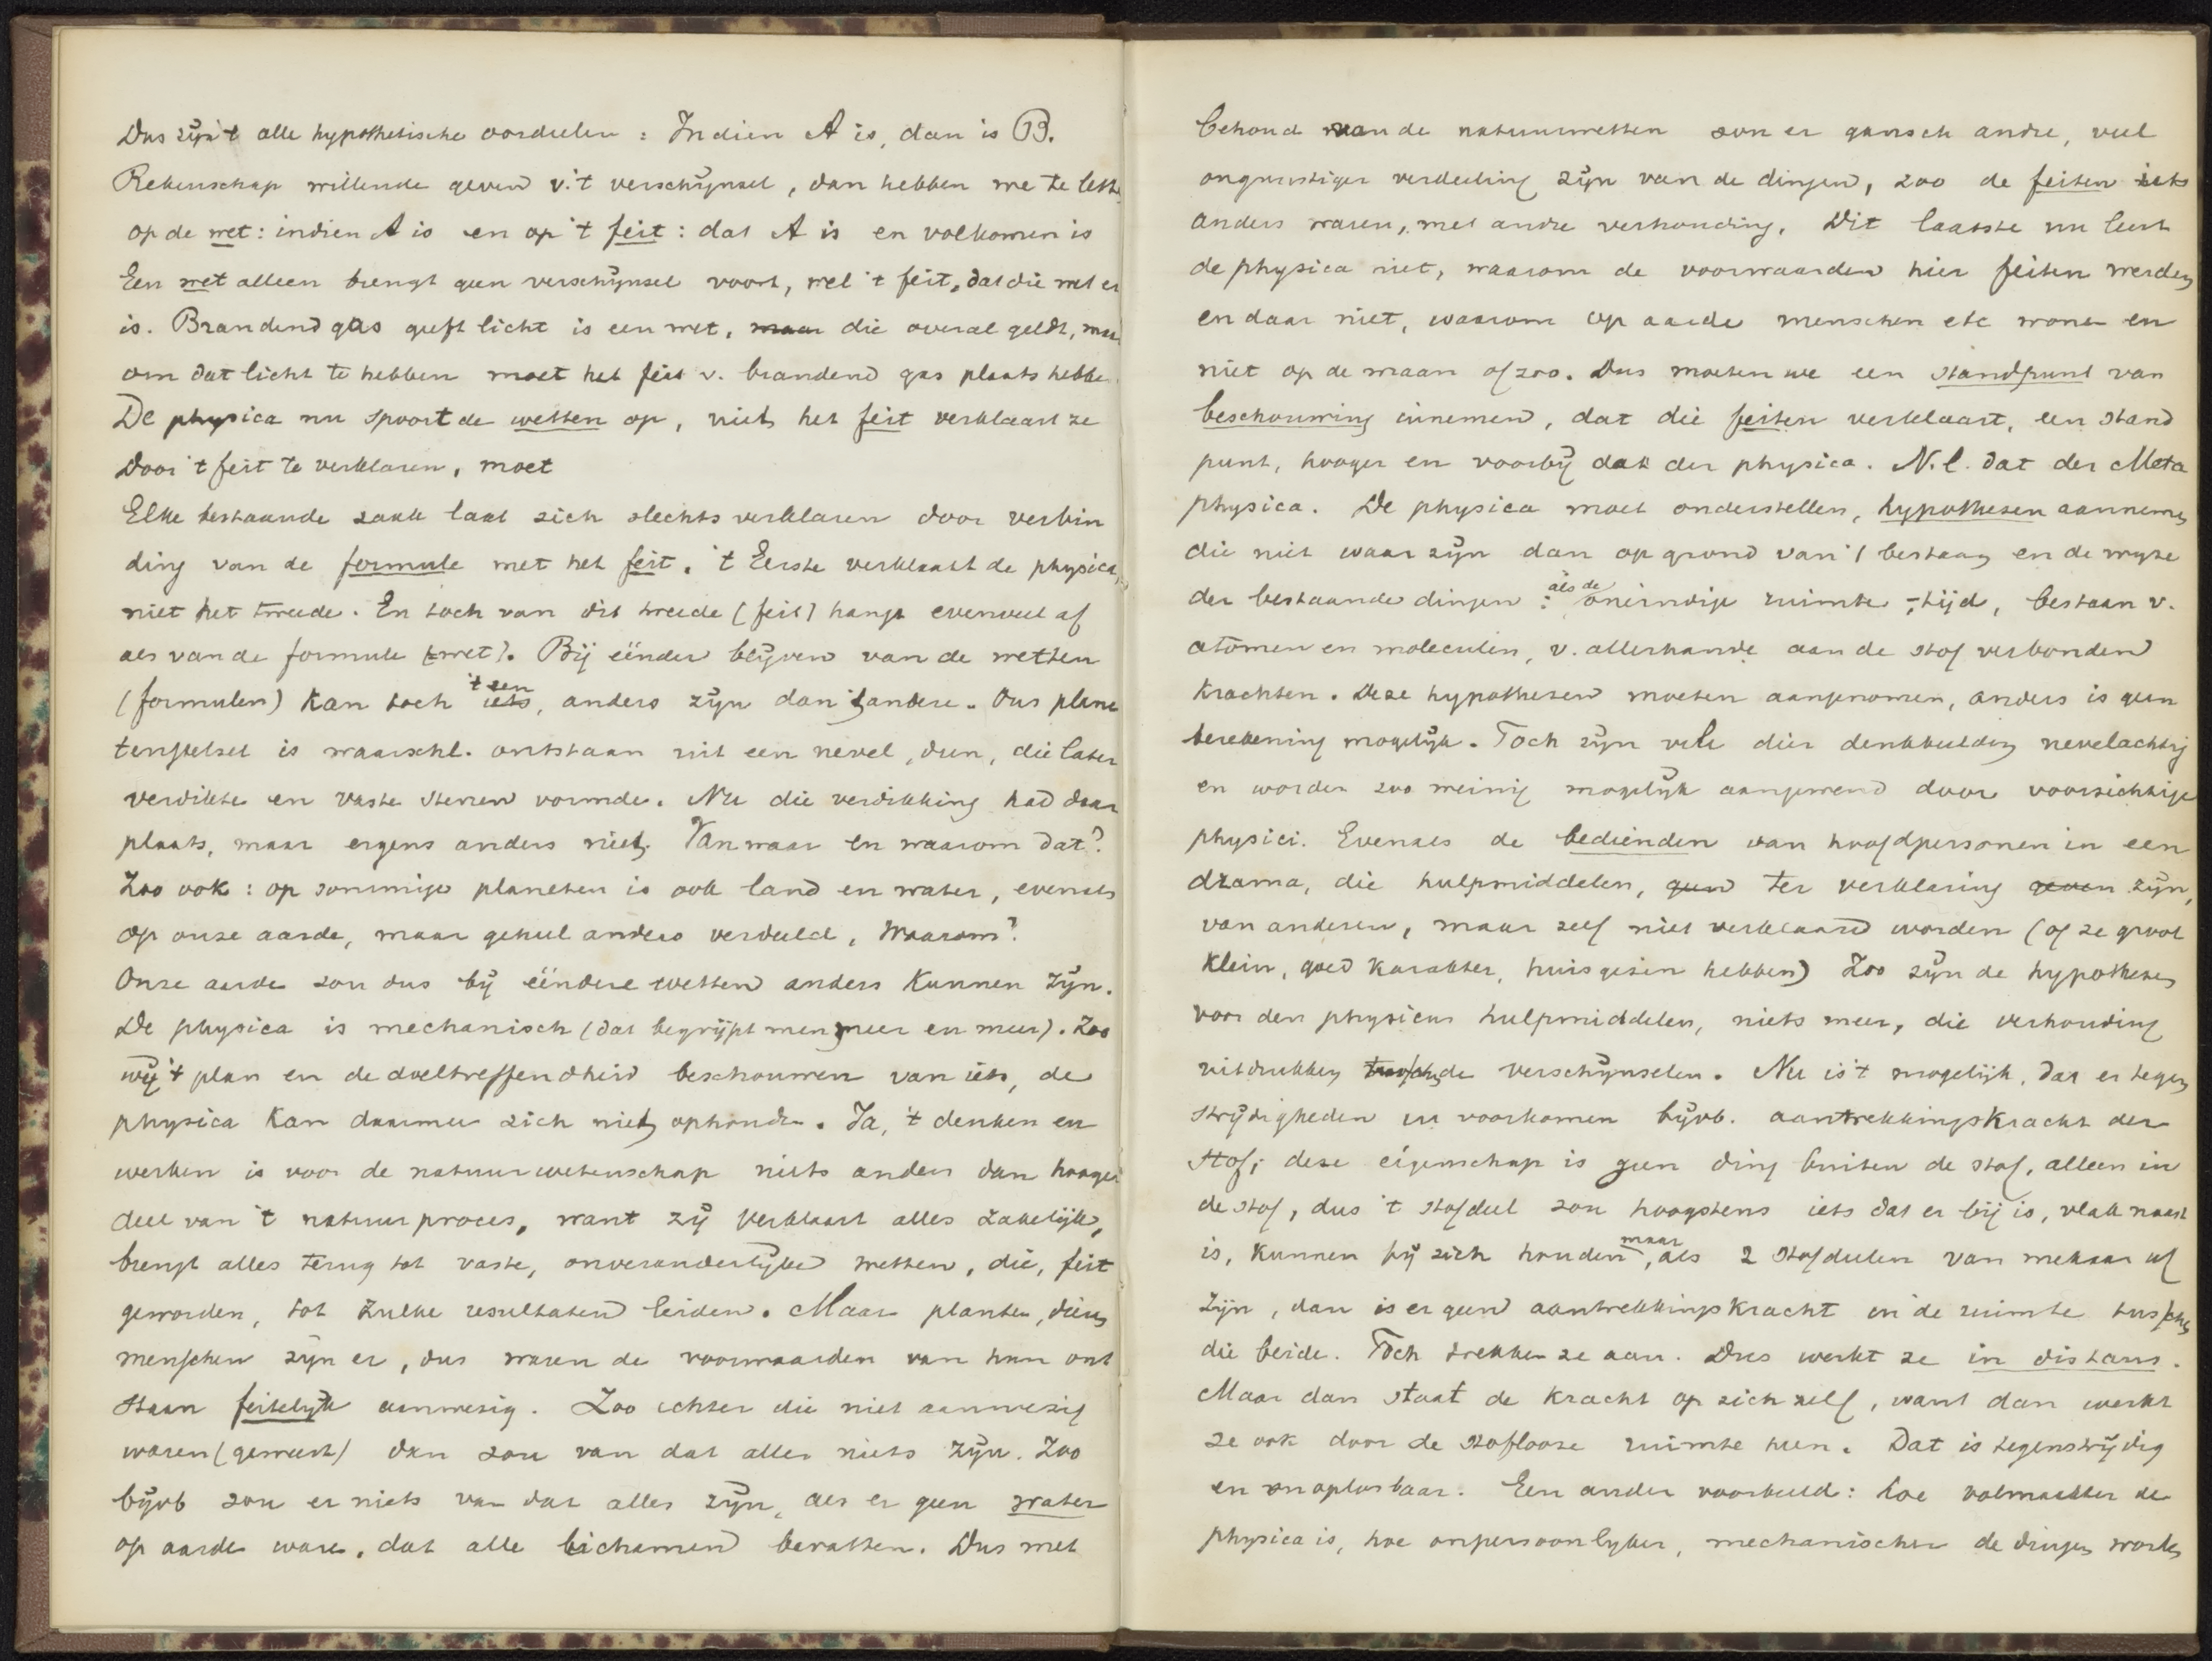 Dus zijn 't alle hypothetische oordeelen : Indien A is, dan is B.
Rekenschap willende geven v. 't verschijnsel, dan hebben we te lett
op de wet : indien A is en op 't feit : dat A is en volkomen is
Een wet alleen brengt geen verschijnsel voort, wel 't feit, dat die wet er
is. Brandend gas geeft licht is een wet, maar die overal geldt, maar
om dat licht te hebben moet het feit v. brandend gas plaats hebbe
De physica nu spoort de wetten op, niet het feit verklaart ze
Door 't feit te verklaren, moet
Elke bestaande zaak laat zich slechts verklaren door verbin
ding van de formule met het feit. 't Eerste verklaart de physica,
niet het tweede. En toch van dit tweede (feit) hangt evenveel af
als van de formule (wet). Bij eender blijven van de wetten
(formulen) kan toch 't een iets, anders zijn dan 't andere. Ons plane
tenstelsel is waarschl. ontstaan uit een nevel, dun, die later
verdikte en vaste sterren vormde. Nu die verdikking had daar
plaats, maar ergens anders niet. Vanwaar en waarom dat?
Zoo ook : op sommige planeten is ook land en water, evenals
op onze aarde, maar geheel anders verdeeld, Waarom?
Onze aarde zou dus bij eendere wetten anders kunnen zijn.
De physica is mechanisch (dat begrijpt men meer en meer). Zoo
wij 't plan en de doeltreffendheid beschouwen van iets, de
physica kan daarmee zich niet ophouden. Ja, 't denken en
werken is voor de natuurwetenschap niets anders dan hooger
deel van 't natuurproces, want zij verklaart alles zakelijk,
brengt alles terug tot vaste, onveranderlijke wetten, die, feit
geworden, tot zulke resultaten leiden. Maar planten, dieren
menschen zijn er, dus waren de voorwaarden van hun ont
staan feitelijk aanwezig. Zoo echter die niet aanwezig
waren (geweest) dan zou van dat alles niets zijn. Zoo
bijvb zou er niets van dat alles zijn, als er geen water
op aarde ware, dat alle lichamen bevatten. Dus met
behoud van de natuurwetten zou er gansch andre, veel
ongunstiger verdeeling zijn van de dingen, zoo de feiten iets
anders waren, met andre verhouding. Dit laatste nu leert
de physica niet, waarom de voorwaarden hier feiten werden
en daar niet, waarom op aarde menschen etc wonen en
niet op de maan of zoo. Dus moeten we een standpunt van
beschouwing innemen, dat die feiten verklaart, een stand
punt, hooger en voorbij dat der physica. N.l. dat der Meta
physica. De physica moet onderstellen, hypothesen aannemen
die niet waar zijn dan op grond van 't bestaan en de wijze
der bestaande dingen : als de oneindige ruimte, tijd, bestaan v.
atomen en moleculen, v. allerhande aan de stof verbonden
krachten. Deze hypothesen moeten aangenomen, anders is geen
berekening mogelijk. Toch zijn vele dier denkbeelden nevelachtig
en worden zoo weinig mogelijk aangewend door voorzichtige
physici. Evenals de bedienden van hoofdpersonen in een
drama, die hulpmiddelen, geen ter verklaring geven zijn,
van anderen, maar zelf niet verklaard worden (of ze groot
klein, goed karakter, huisgezin hebben) Zoo zijn de hypothesen
voor den physicus hulpmiddelen, niets meer, die verhouding
uitdrukken tusschen de verschijnselen. Nu is 't mogelijk, dat er tegen
strijdigheden in voorkomen bijvb. aantrekkingskracht der
stof; deze eigenschap is geen ding buiten de stof, alleen in
de stof, dus 't stofdeel zou hoogstens iets dat er bij is, vlak naast
is, kunnen bij zich houden, maar als 2 stofdeelen van mekaar af
zijn, dan is er geen aantrekkingskracht in de ruimte tusschen
die beide. Toch trekken ze aan. Dus werkt ze in distans.
Maar dan staat de kracht op zich zelf, want dan werkt
ze ook door de stoflooze ruimte heen. Dat is tegenstrijdig
en onoplosbaar. Een ander voorbeeld : hoe volmaakter de
physica is, hoe onpersoonlijker, mechanischer de dingen worden